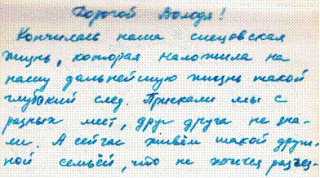 Дорогой Володя!
Кончилась наша спецовская
жизнь, которая наложила на
нашу дальнейшую жизнь такой
глубокий след. Приехали мы с
разных мест, друг друга не зна-
ли. А сейчас живём такой друж-
ной семьёй, что не хочется разъез-